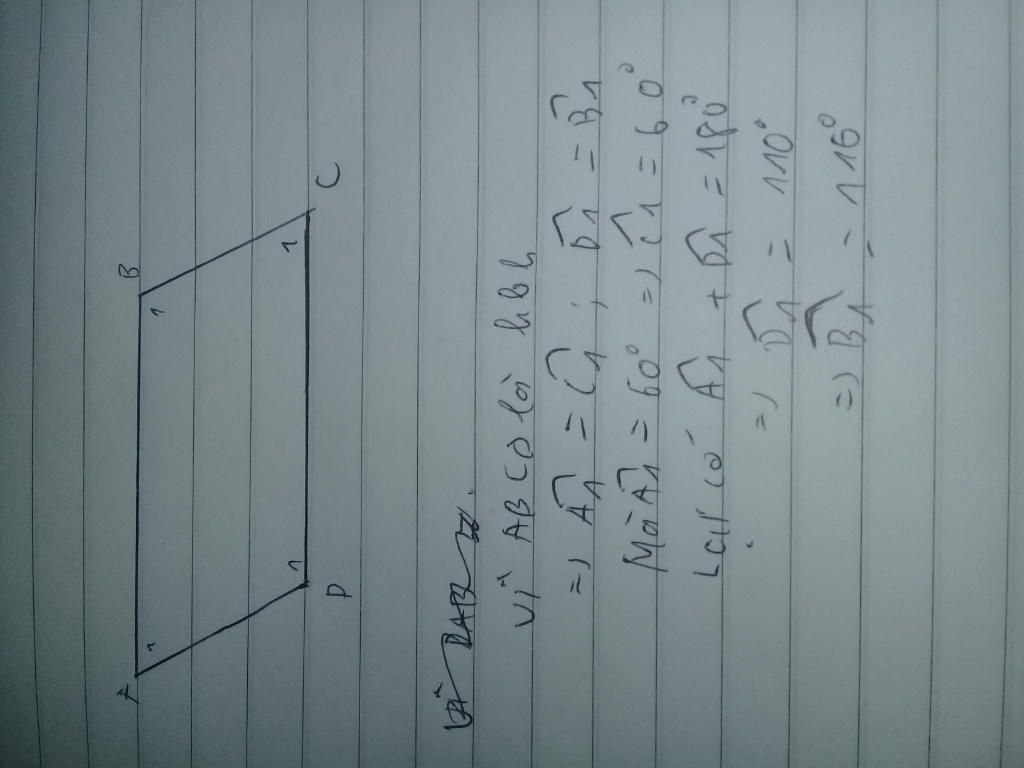 A B
1 1
1 1
D C
Vì ABCD là hbh
=> Â1 = Ĉ1 ; D̂1 = B̂1
Mà Â1 = 60° => Ĉ1 = 60°
Lại có Â1 + D̂1 = 180°
=> D̂1 = 110°
=> B̂1 = 116°